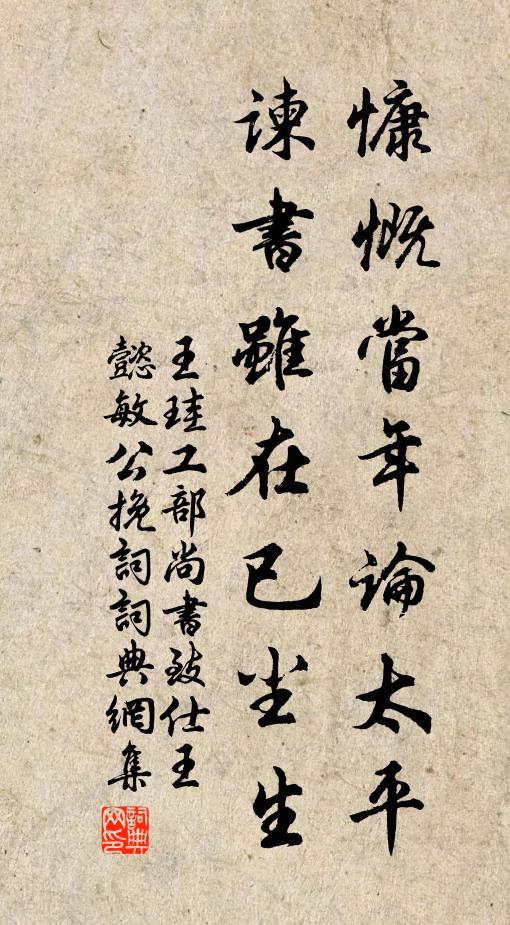 慷慨當年論太平
諫書雖在已尘生
王珪工部尚書致仕王
懿敏公挽詞詞典網集
詞典网印